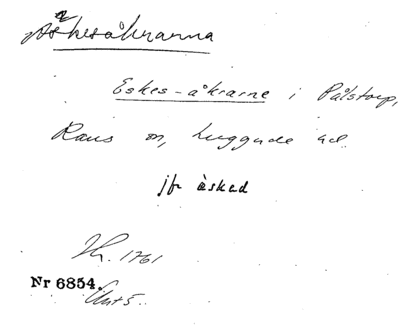 Äskesåkrarna
Eskes-åkrarne i Pålstorp,
Raus sn, Luggude hd.
jfr äskad
1761
Nr 6854.